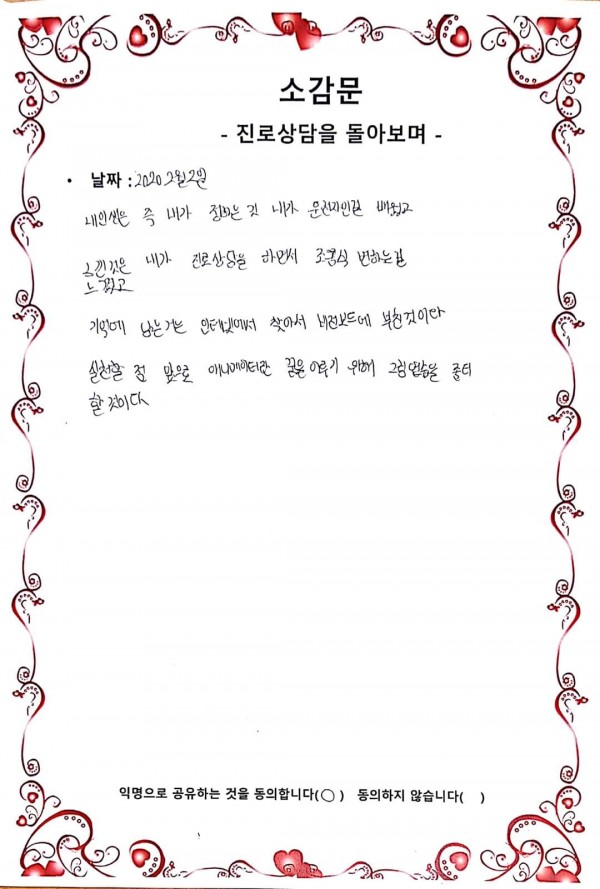 소감문
- 진로상담을 돌아보며 -
• 날짜 : 2020 2월 2일
내 인생은 즉 내가 정하는 것 내가 운전자인걸 배웠고
느낀것은 내가 진로상담을 하면서 조금식 변하는걸
느꼈고
기억에 남는거는 인터넷에서 찾아서 비전보드에 부친것이다
실천할 점 앞으로 애니메이터란 꿈을 이루기 위해 그림연습을 좀더
할것이다
익명으로 공유하는 것을 동의합니다(○) 동의하지 않습니다( )